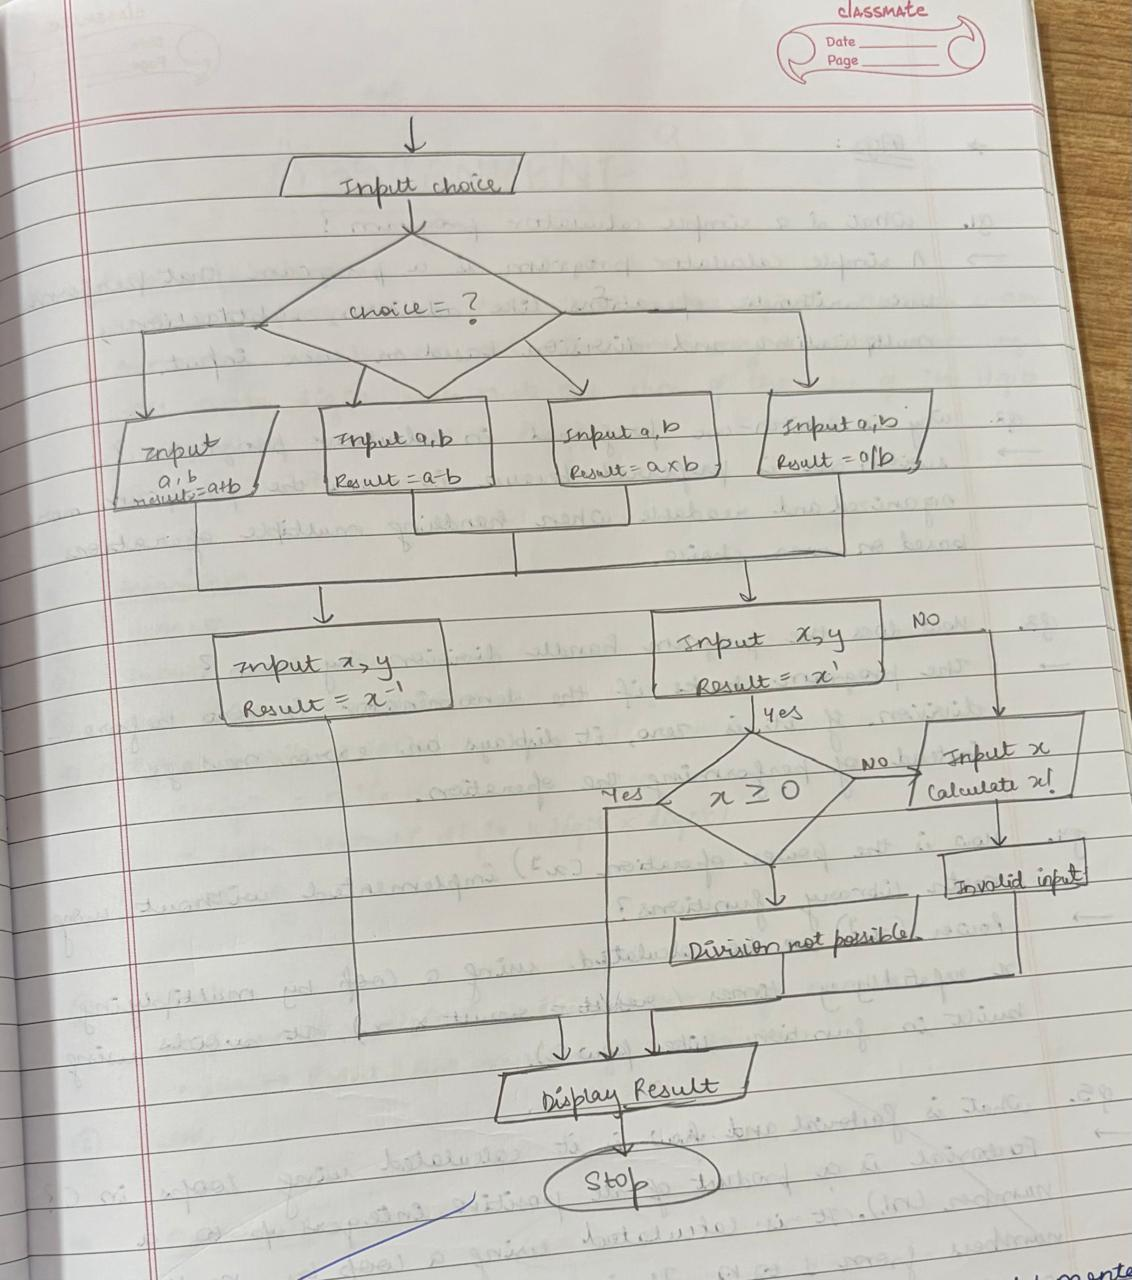 classmate
Date
Page
Input choice
choice = ?
Input
a, b
result = a+b
Input a, b
Result = a-b
Input a, b
Result = a x b
Input a, b
Result = a/b
Input x, y
Result = x⁻¹
Input x, y
Result = x'
NO
Yes
x ≥ 0
NO
Yes
Input x
Calculate x!
Invalid input
Division not possible
Display Result
Stop